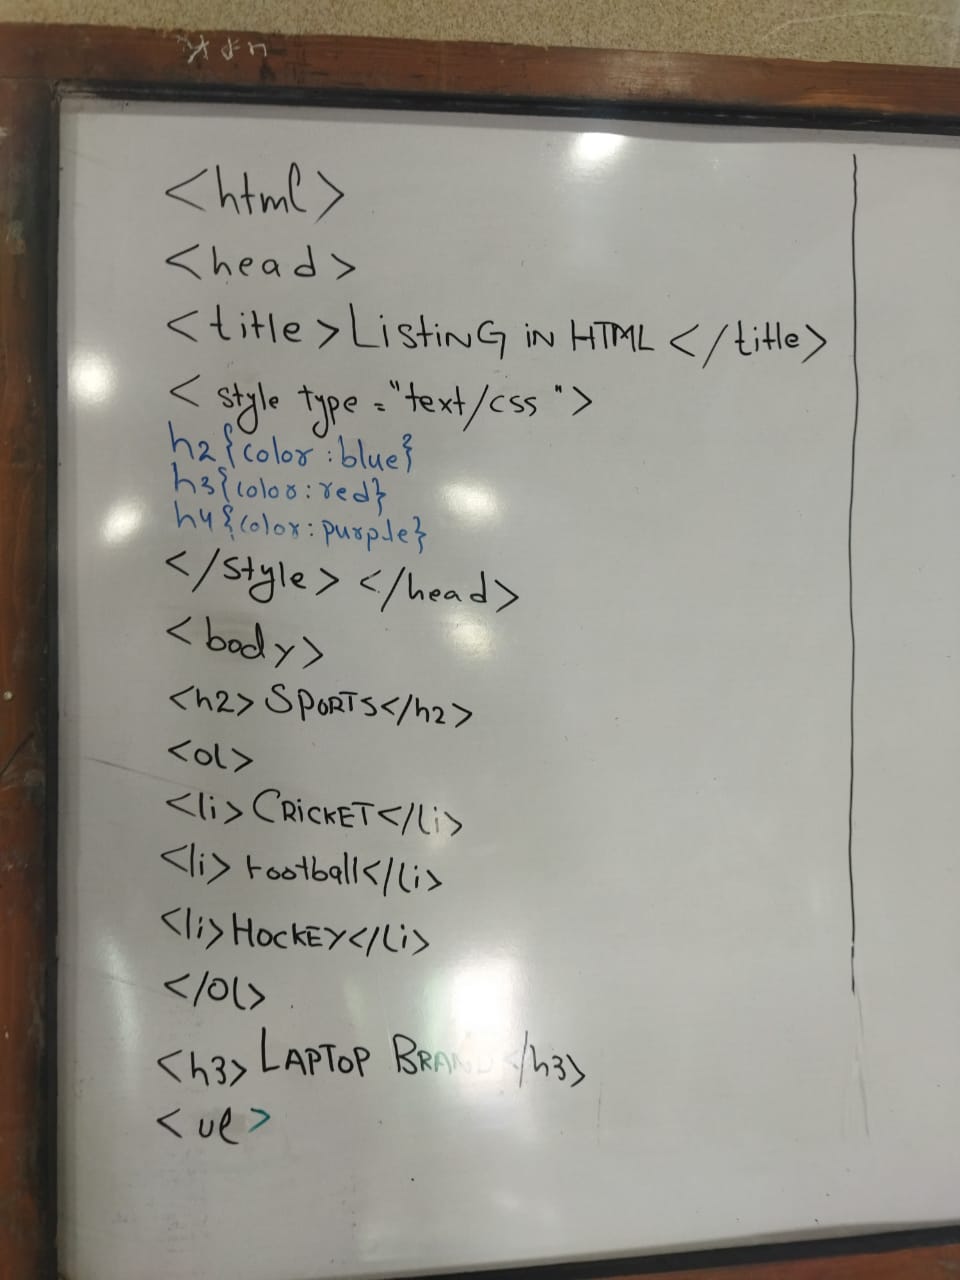 <html>
<head>
<title>LiStiNG iN HTML </title>
< style type = "text/css ">
h2{color:blue}
h3{color:red}
h4{color:purple}
</style> </head>
<body>
<h2> SPORTS</h2>
<ol>
<li> CRiCKET</li>
<li> Football</li>
<li> HocKEY</li>
</ol>
<h3> LAPTOP BRAND</h3>
<ul>